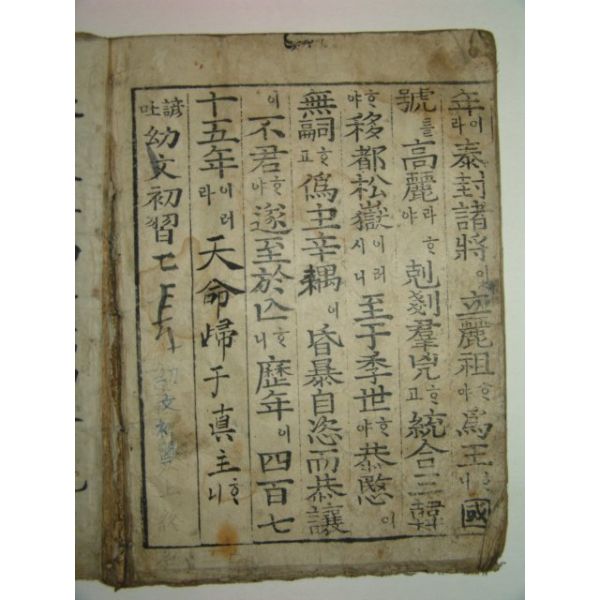 年이라泰封諸將이立麗祖ᄒᆞ야爲王ᄒᆞ니國
號를高麗라ᄒᆞ야剋剗羣兇ᄒᆞ고統合三韓
ᄒᆞ야移都松嶽이러시니至于季世ᄒᆞ야恭愍이
無嗣ᄒᆞ고爲主辛耦이昏暴自恣而恭讓
이不君ᄒᆞ야遂至於亾ᄒᆞ니歷年이四百七
十五年이러라天命歸于眞主ᄒᆞ니
諺吐幼文初習